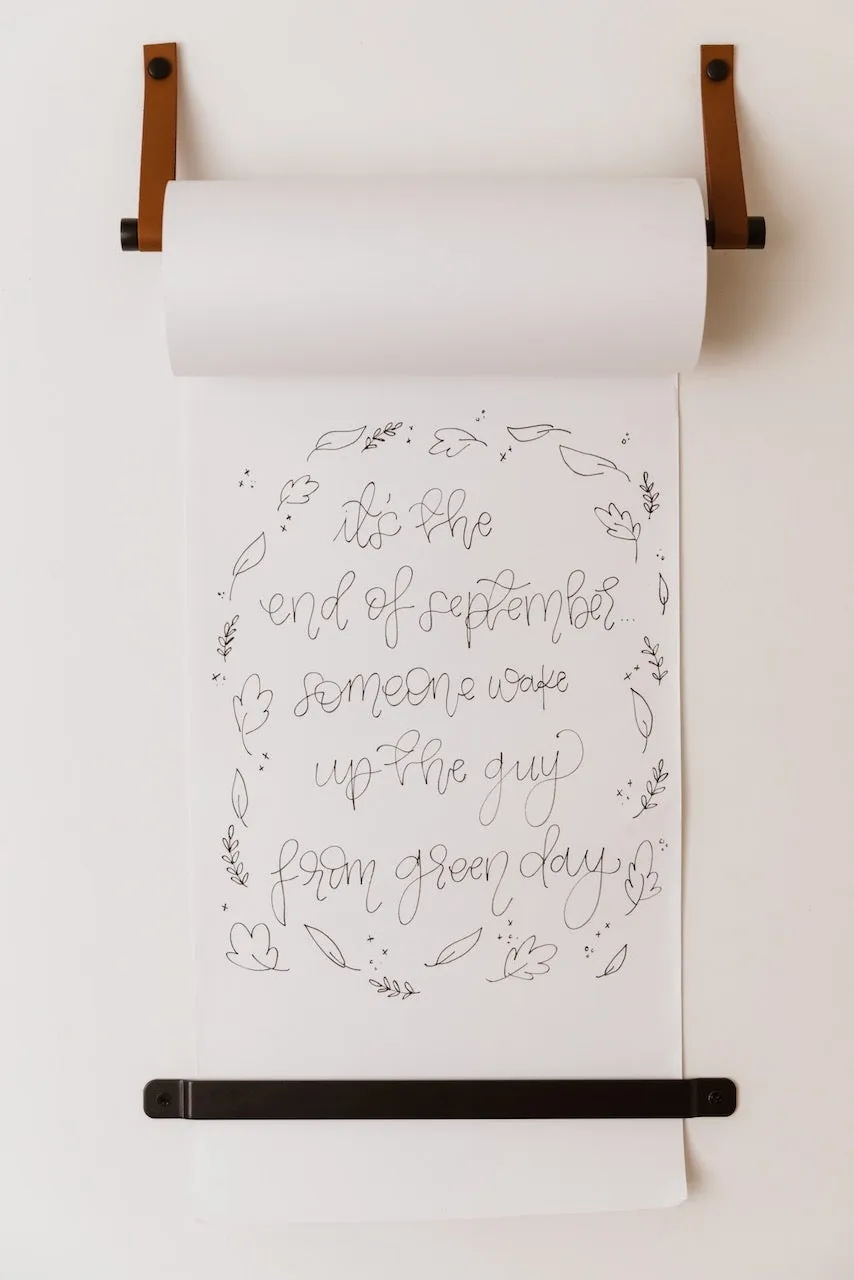 it's the
end of september...
someone wake
up the guy
from green day